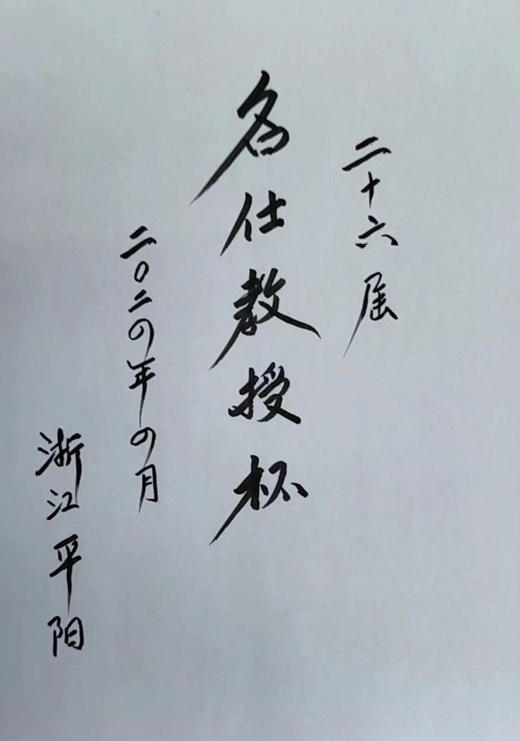 二十六届
名仕教授杯
二〇二四年四月
浙江平阳